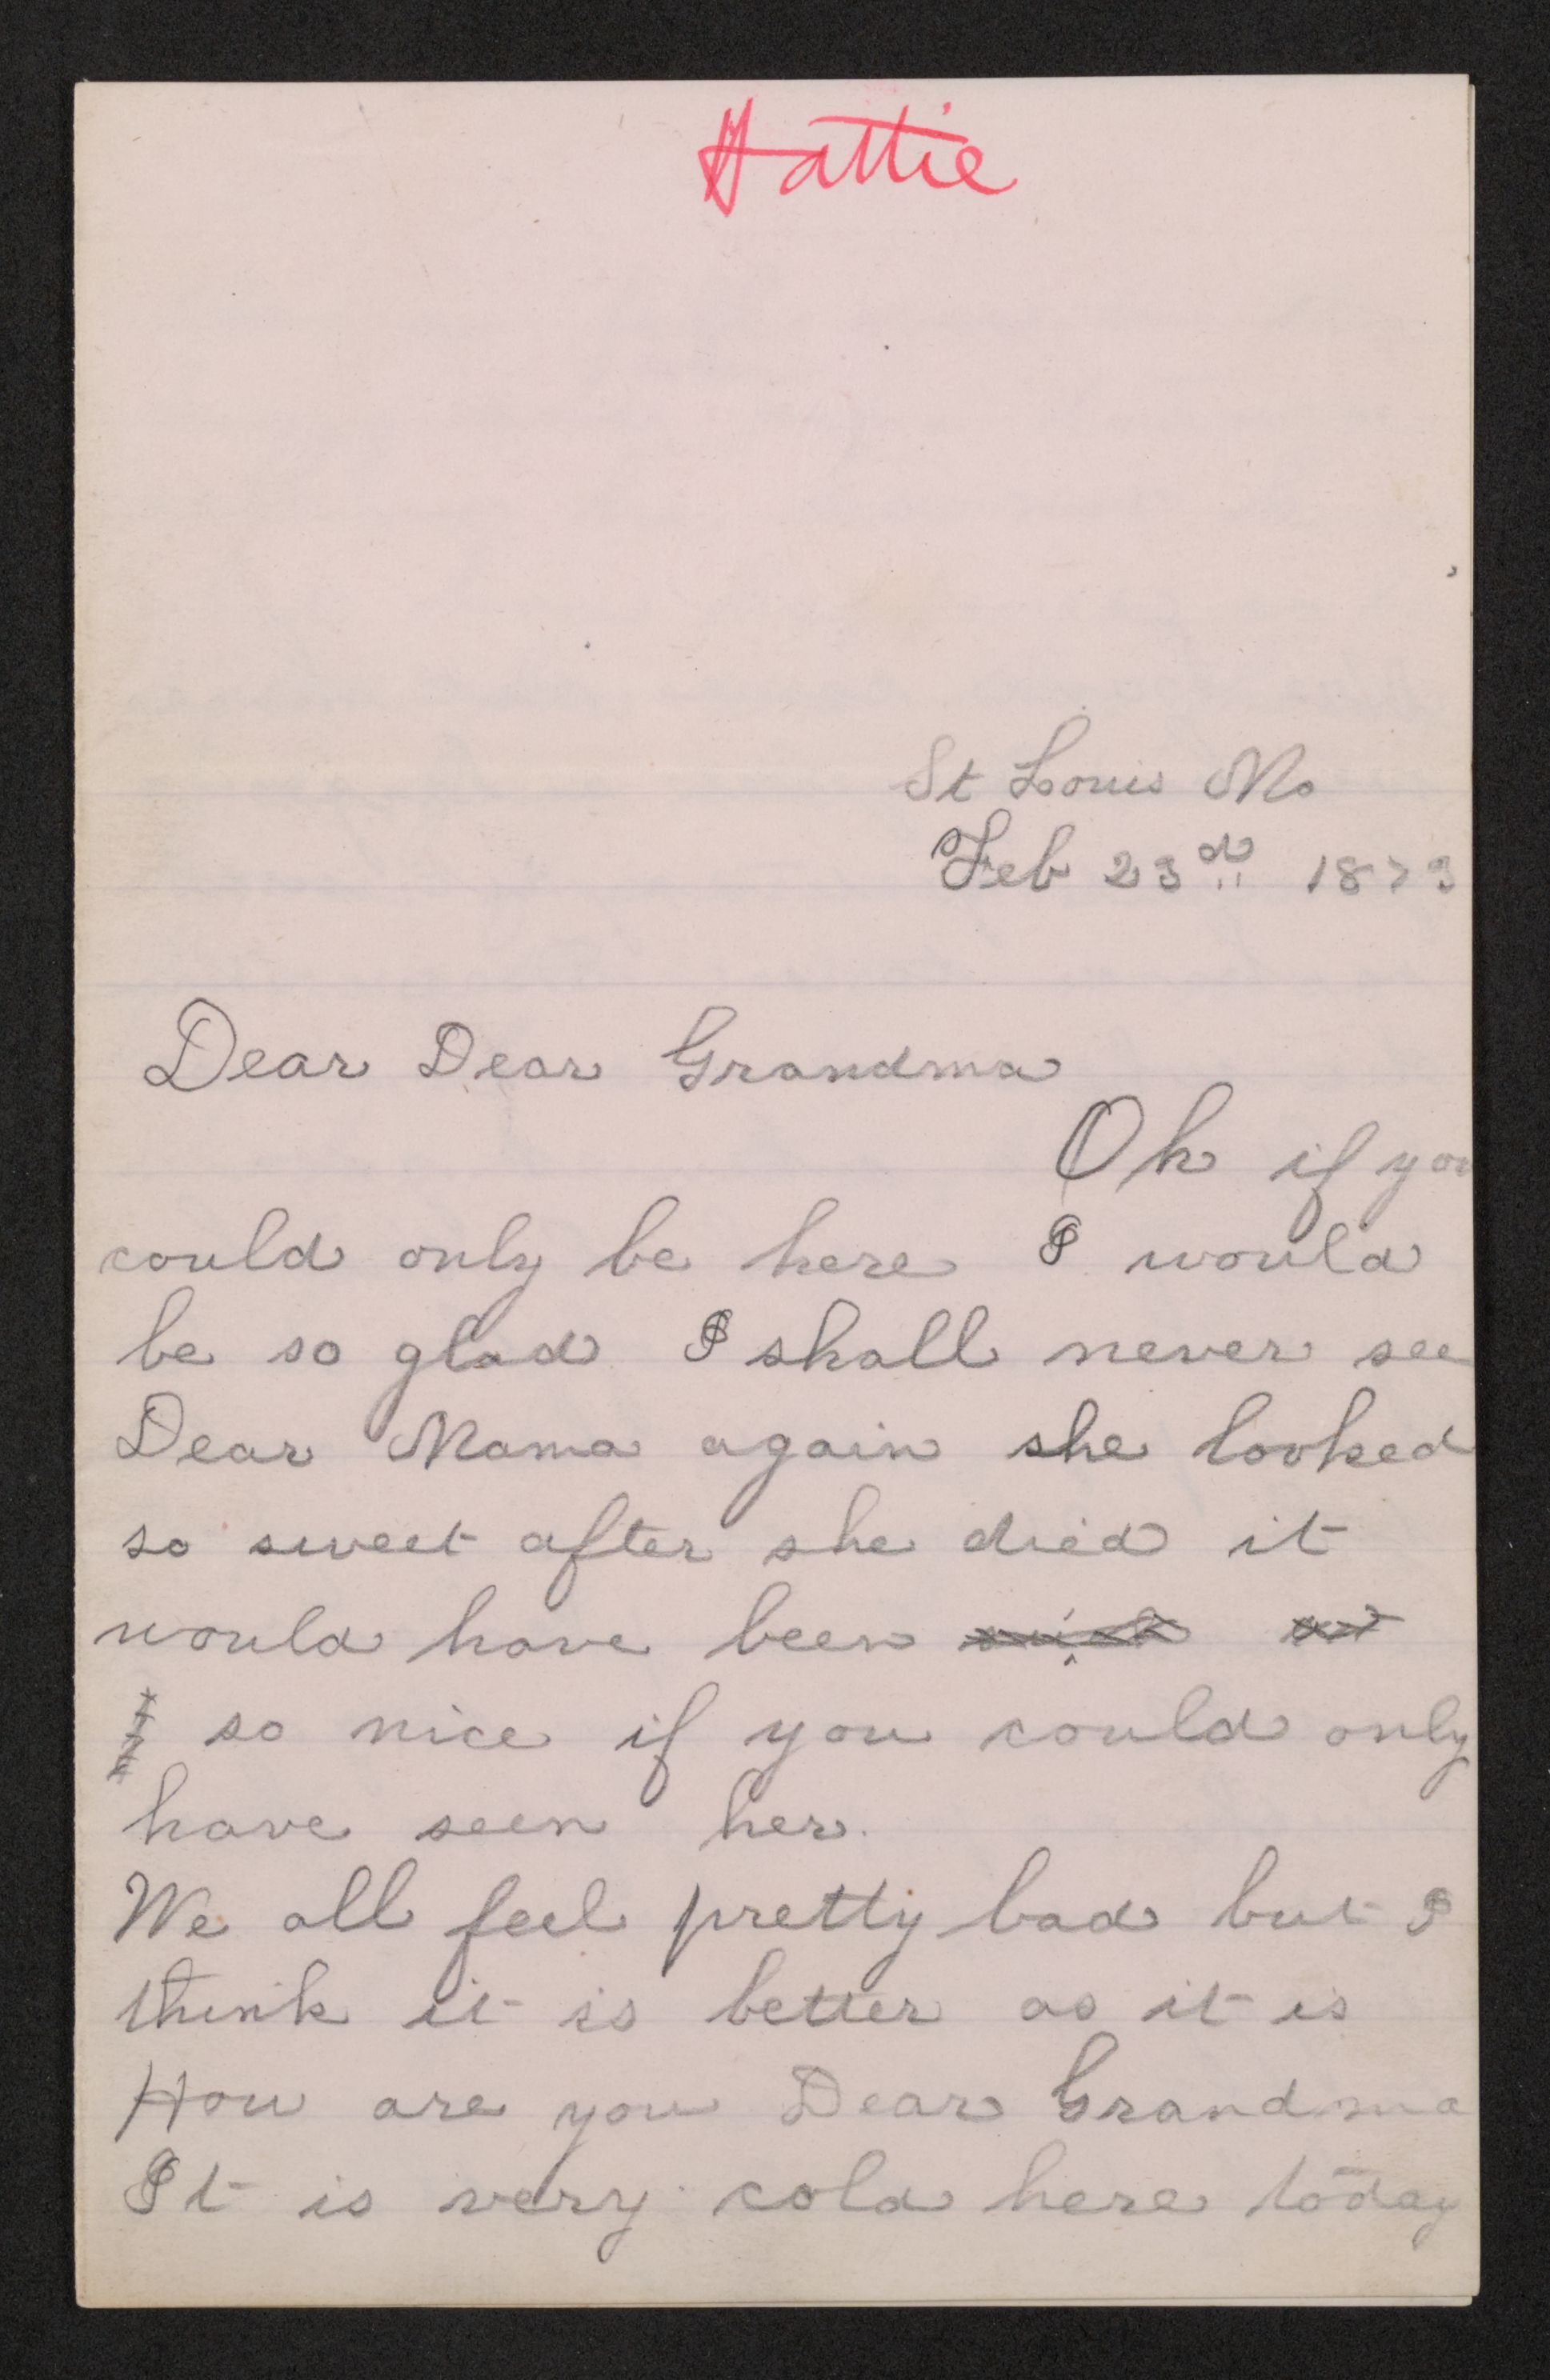 Hattie
St Louis Mo
Feb 23d 1879
Dear Dear Grandma
Oh if you
could only be here I would
be so glad I shall never see
Dear Mama again she looked
so sweet after she died it
would have been
so nice if you could only
have seen her.
We all feel pretty bad but I
think it is better as it is
How are you Dear Grandma
It is very cold here today